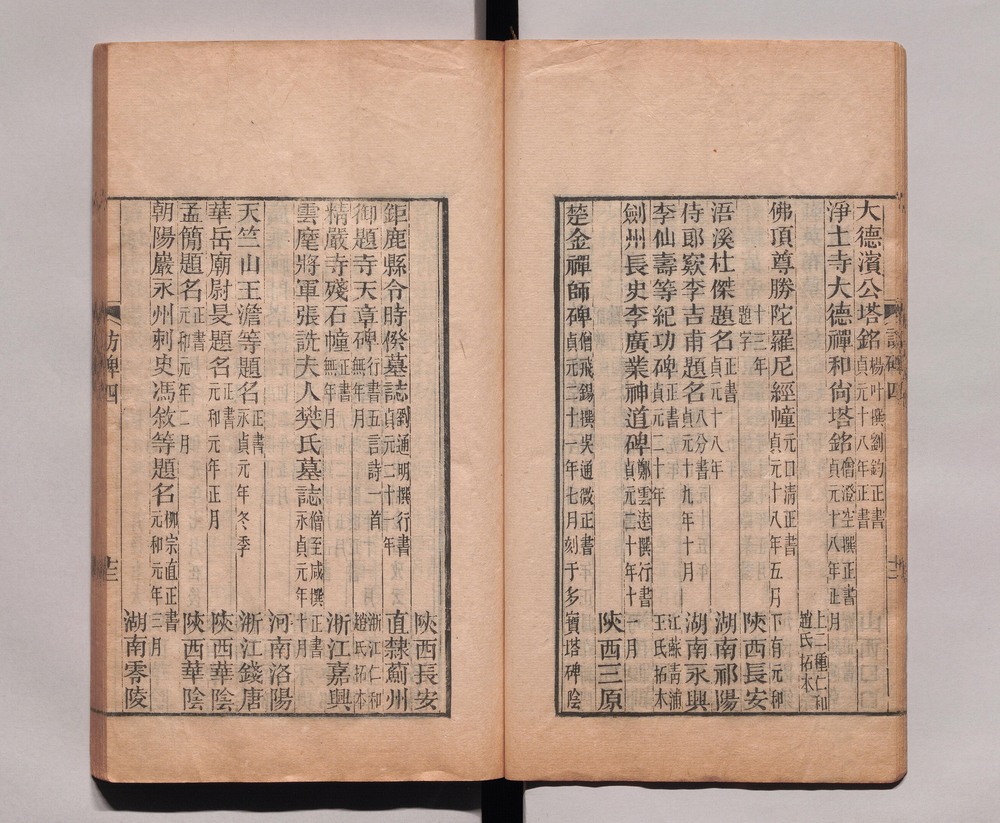 大德濱公塔銘 楊叶撰劉鈞正書 貞元十八年正書
淨土寺大德禪和尚塔銘 僧澄空撰正書 貞元十八年正月 上二種仁和趙氏拓本
佛頂尊勝陀羅尼經幢 元口清正書 貞元十八年五月下有元和
十三年題字 陝西長安
浯溪杜傑題名 正書 貞元十八年 湖南祁陽
侍郎窽李吉甫題名 八分書 貞元十九年十月 湖南永興
李仙壽等紀功碑 正書 貞元二十年 江蘇青浦王氏拓本
劍州長史李廣業神道碑 鄭雲逵撰行書 貞元二十年十一月
陝西三原
楚金禪師碑 僧飛錫撰吳通微正書 貞元二十一年七月刻于多寶塔碑陰
訪碑四
陝西長安
鉅鹿縣令時傑墓誌 劉通明撰行書 貞元二十一年 直隸薊州
御題寺天章碑 行書五言詩一首 無年月 浙江仁和趙氏拓本
精嚴寺殘石幢 正書 無年月 浙江嘉興
雲麾將軍張詵夫人樊氏墓誌 僧至咸撰正書 永貞元年十月
河南洛陽
天竺山王澹等題名 正書 永貞元年冬季 浙江錢唐
華岳廟尉旻題名 正書 元和元年正月 陝西華陰
孟簡題名 正書 元和元年二月 陝西華陰
朝陽巖永州刺史馮敘等題名 柳宗直正書 元和元年三月 湖南零陵
訪碑四